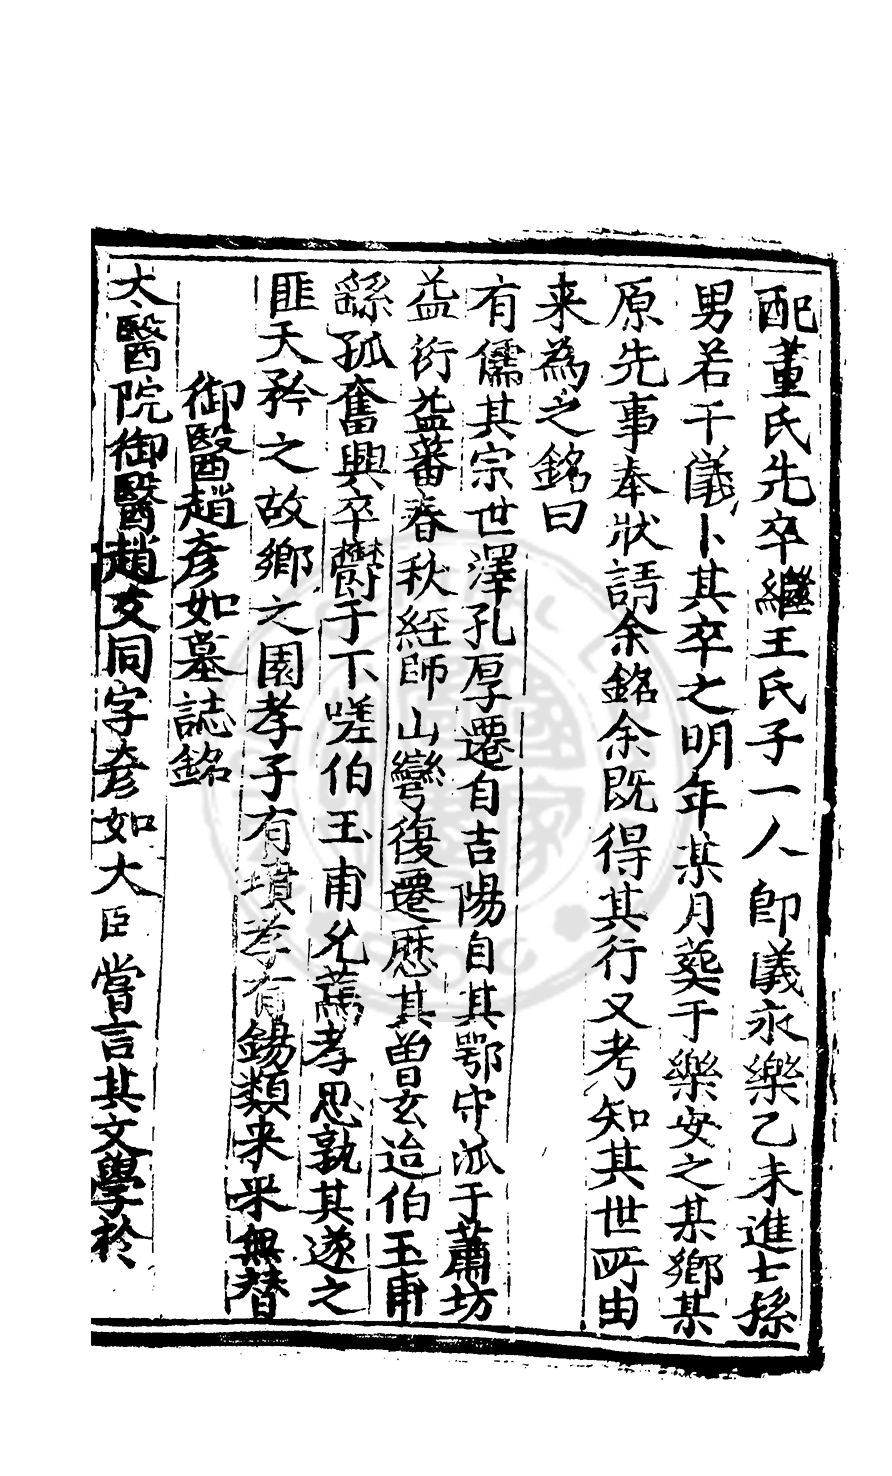 配董氏先卒繼王氏子一人即儀永樂乙未進士孫
男若干儀卜其卒之明年某月葬于樂安之某鄉某
原先事奉狀請余銘余既得其行又考知其世所由
来為之銘曰
有儒其宗世澤孔厚遷自吉陽自其鄂守派于蕭坊
益衍益蕃春秋經師山灣復遷歷其曾玄迨伯玉甫
繇孤奮興卒欝于下嗟伯玉甫允蔿孝思孰其遂之
匪天矜之故鄉之園孝子有墳孝有錫類来釆無替
御醫趙彥如墓誌銘
太醫院御醫趙友同字彥如大臣嘗言其文學於